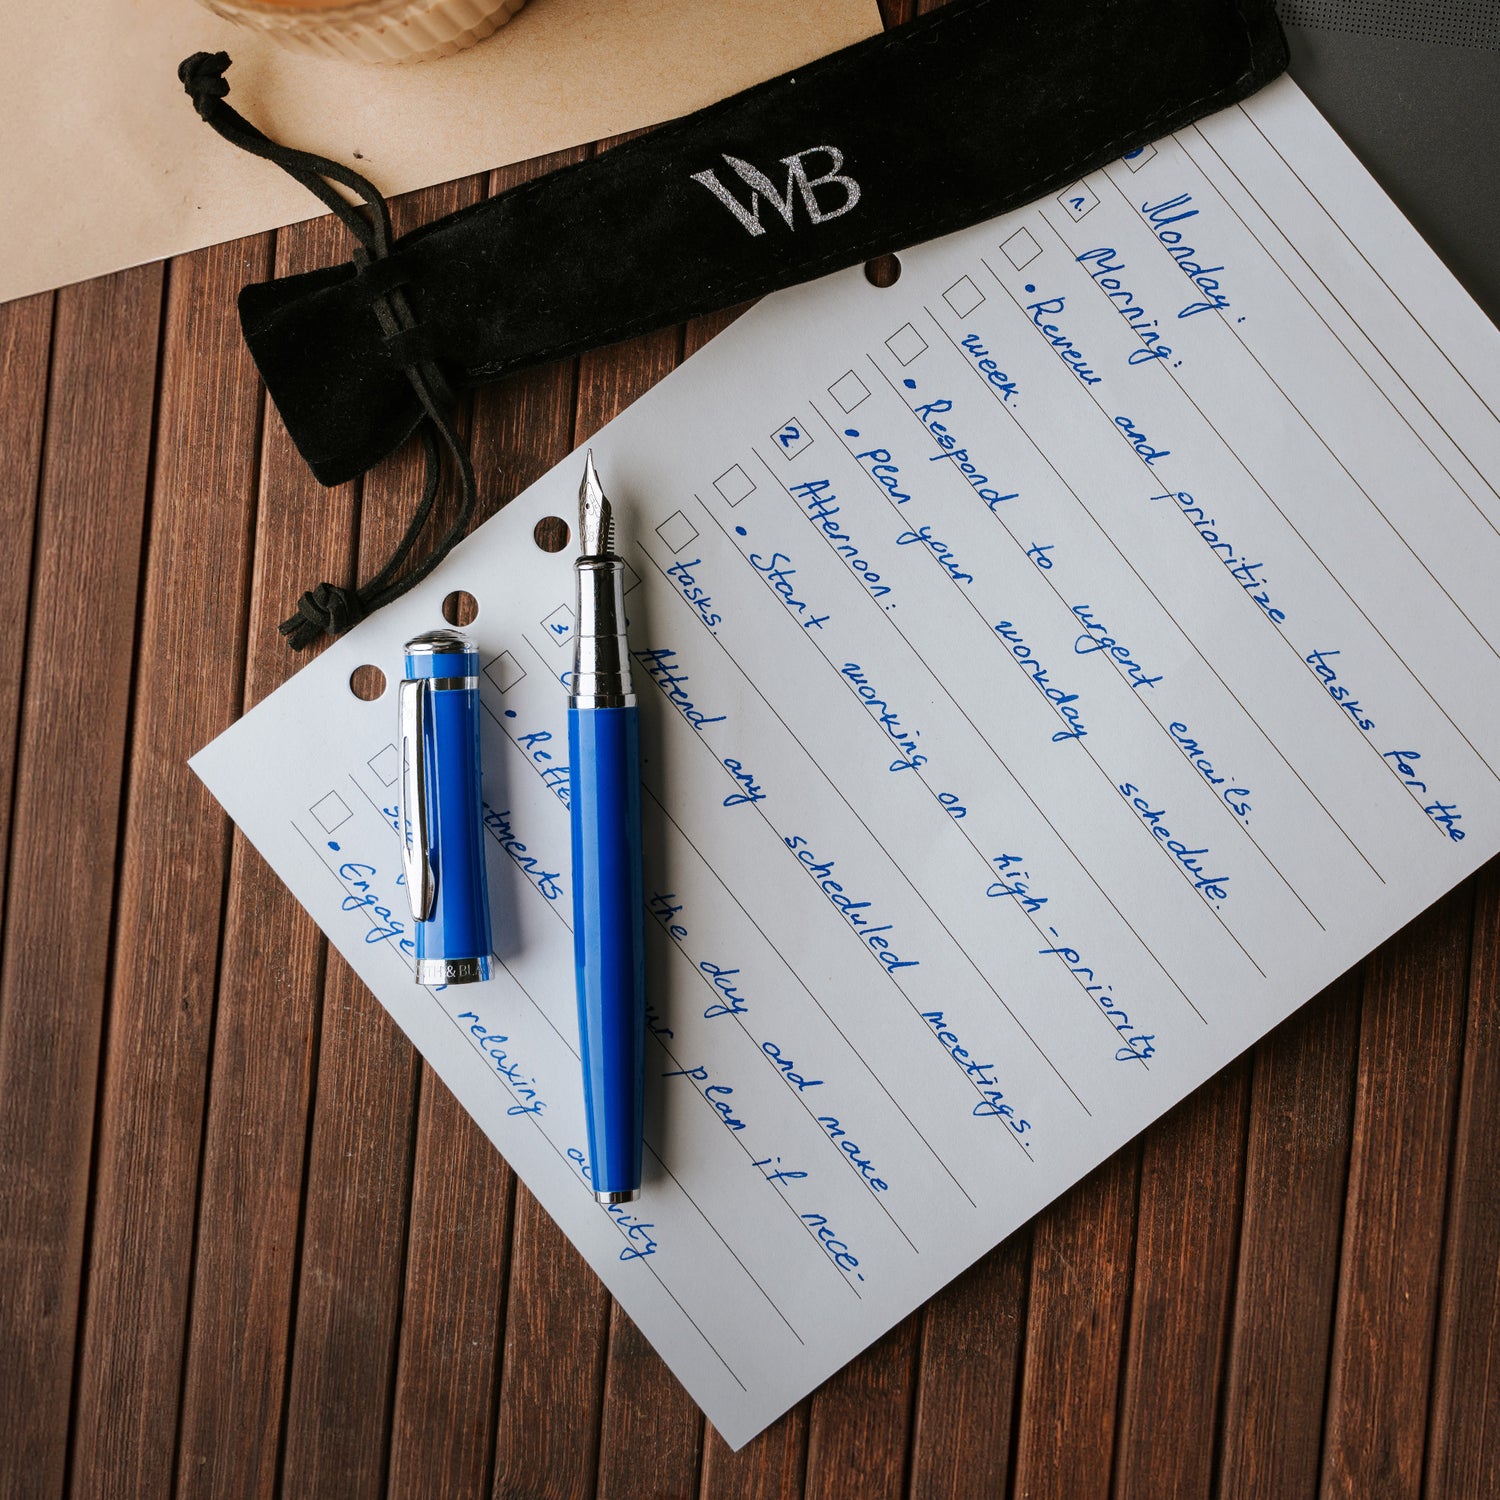 WB
Monday:
1. Morning:
• Review and prioritize tasks for the
week.
• Respond to urgent emails.
• plan your workday schedule.
2 Afternoon:
• Start working on high-priority
tasks.
Attend any scheduled meetings.
3
• Reflec the day and make
tments ur plan if nece-
• Engage relaxing activity
TH & BLA